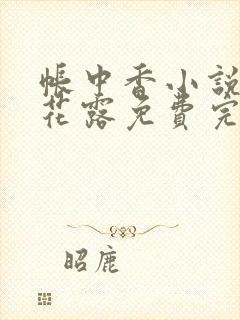 帳中香小說
花露免費完
昭鹿